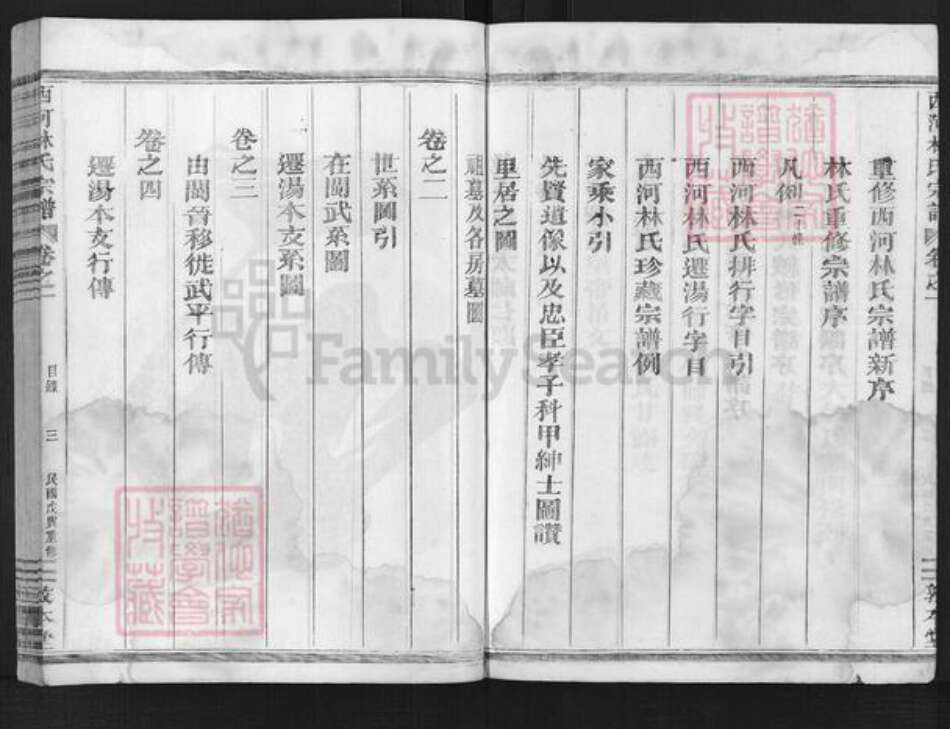 重修西河林氏宗譜新序
林氏重修宗譜序
凡例
西河林氏排行字目引
西河林氏遷湯行字目
西河林氏珍藏宗譜例
家乘小引
先賢遺像以及忠臣孝子科甲紳士圖讚
里居之圖
祖墓及各房墓圖
卷之二
世系圖引
在閩武系圖
遷湯本支系圖
卷之三
由閩晉移徙武平行傳
卷之四
遷湯本支行傳
西河林氏宗譜 卷之一 目錄 三 民國戊辰重修 敦本堂
FamilySearch